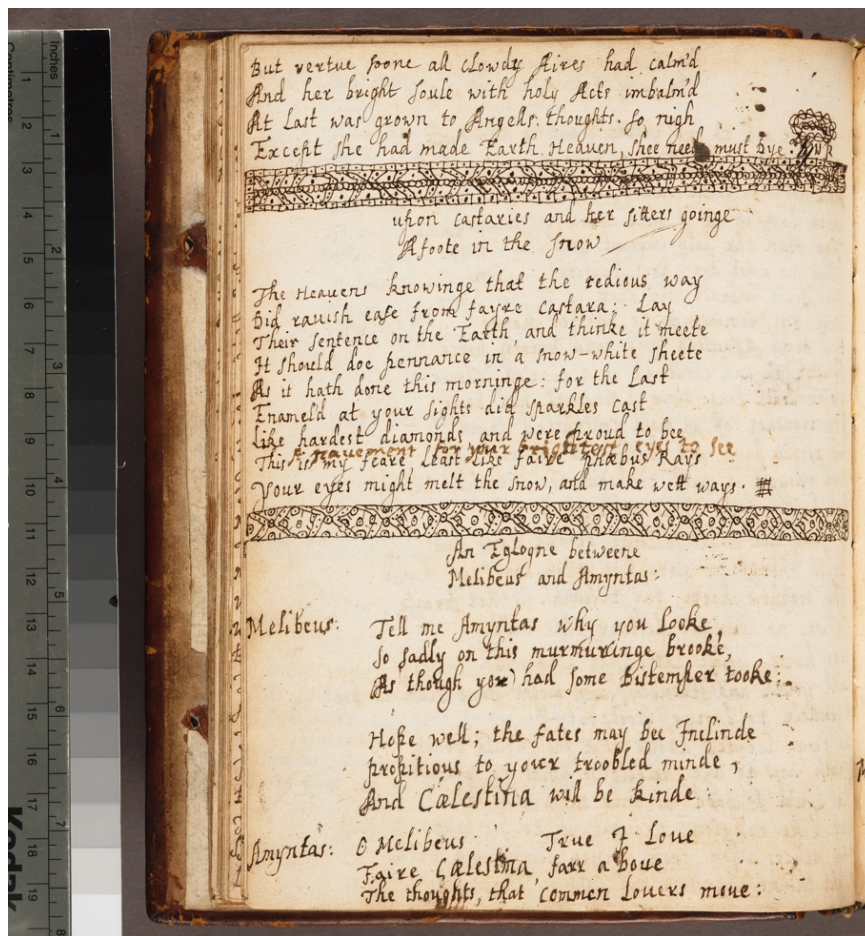 But vertue soone all clowdy Aires had calm'd
And her bright soule with holy Acts imbalm'd
At Last was grown to Angells thoughts so nigh
Except she had made Earth Heaven, shee needs must Dye.
upon Castaries and her sisters goinge
Afoote in the snow
The Heavens knowinge that the tedious way
Did ravish ease from fayre Castara: Lay
Their sentence on the Earth, and thinke it meete
It should doe pennance in a snow-white sheete
As it hath done this morninge: for the Last
Enameld at your sights did sparkles cast
Like hardest diamonds and were proud to bee
A pavement for your brightest eyes to see
This is my feare, Least like faire Phœbus Rays
Your eyes might melt the snow, and make wett ways.
An Eglogne betweene
Melibeus and Amyntas:
Melibeus: Tell me Amyntas why you Looke,
So sadly on this murmuringe brooke,
As though you had some Distemper tooke:
Hope well; the fates may bee Inclinde
propitious to yower troobled minde,
And Cælestina will be kinde
Amyntas: O Melibeus True I Love
Faire Cælestina farr aboue
The thoughts, that common Lovers move:
Inches
1
2
3
4
5
6
7
8
Centimetres
1
2
3
4
5
6
7
8
9
10
11
12
13
14
15
16
17
18
19
Kodak